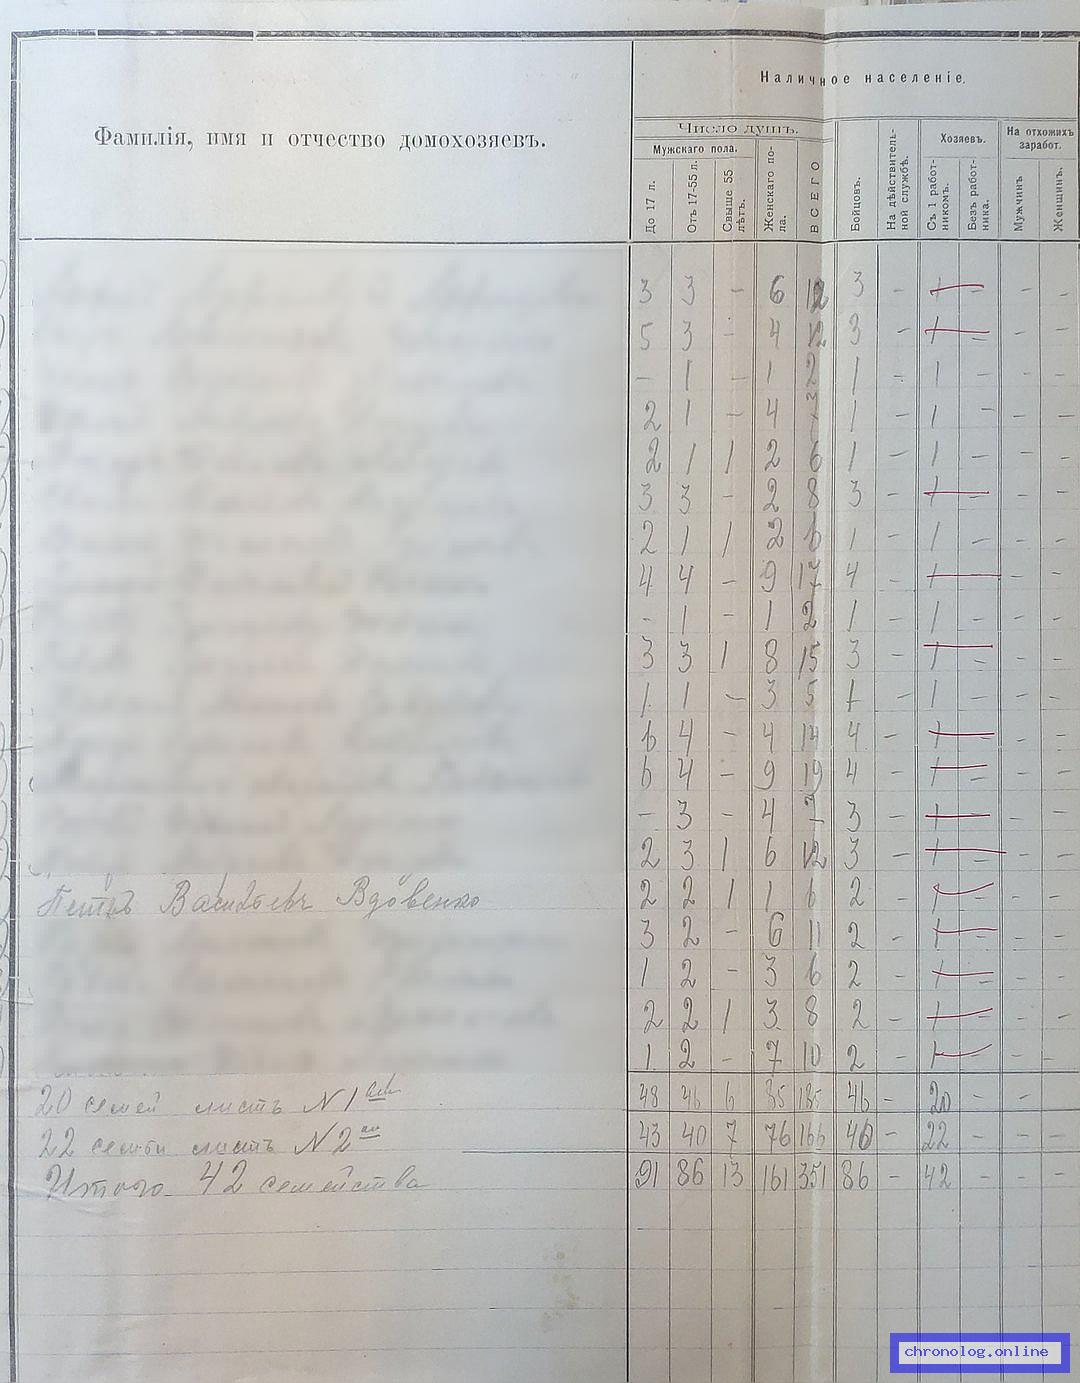 Наличное населеніе.
Фамилія, имя и отчество домохозяевъ.
Число душъ.
Мужскаго пола.
До 17 л.
Отъ 17-55 л.
Свыше 55 лѣтъ.
Женскаго пола.
ВСЕГО
Бойцовъ.
На дѣйствительной службѣ.
Хозяевъ.
Съ 1 работникомъ.
Безъ работника.
На отхожихъ заработ.
Мужчинъ
Женщинъ.
3 3 – 6 12 3 – 1 – – –
5 3 – 4 12 3 – 1 – – –
– 1 – 1 2 1 – 1 – – –
2 1 – 4 1 – 1 – – –
2 1 1 2 6 1 – 1 – – –
3 3 – 2 8 3 – 1 – – –
2 1 1 2 6 1 – 1 – – –
4 4 – 9 17 4 – 1 – – –
– 1 – 1 2 1 – 1 – – –
3 3 1 8 15 3 – 1 – – –
1 1 – 3 5 1 – 1 – – –
6 4 – 4 14 4 – 1 – – –
6 4 – 9 19 4 – 1 – – –
– 3 – 4 7 3 – 1 – – –
2 3 1 6 12 3 – 1 – – –
Петръ Васильевъ Вдовенко 2 2 1 1 6 2 – 1 – – –
3 2 – 6 11 2 – 1 – – –
1 2 – 3 6 2 – 1 – – –
2 2 1 3 8 2 – 1 – – –
1 2 – 7 10 2 – 1 – – –
20 семей листъ N 1 48 46 6 85 185 46 – 20 – –
22 семьи листъ N 2 43 40 7 76 166 40 – 22 – – –
Итого 42 семейства 91 86 13 161 351 86 – 42 – – –
chronolog.online